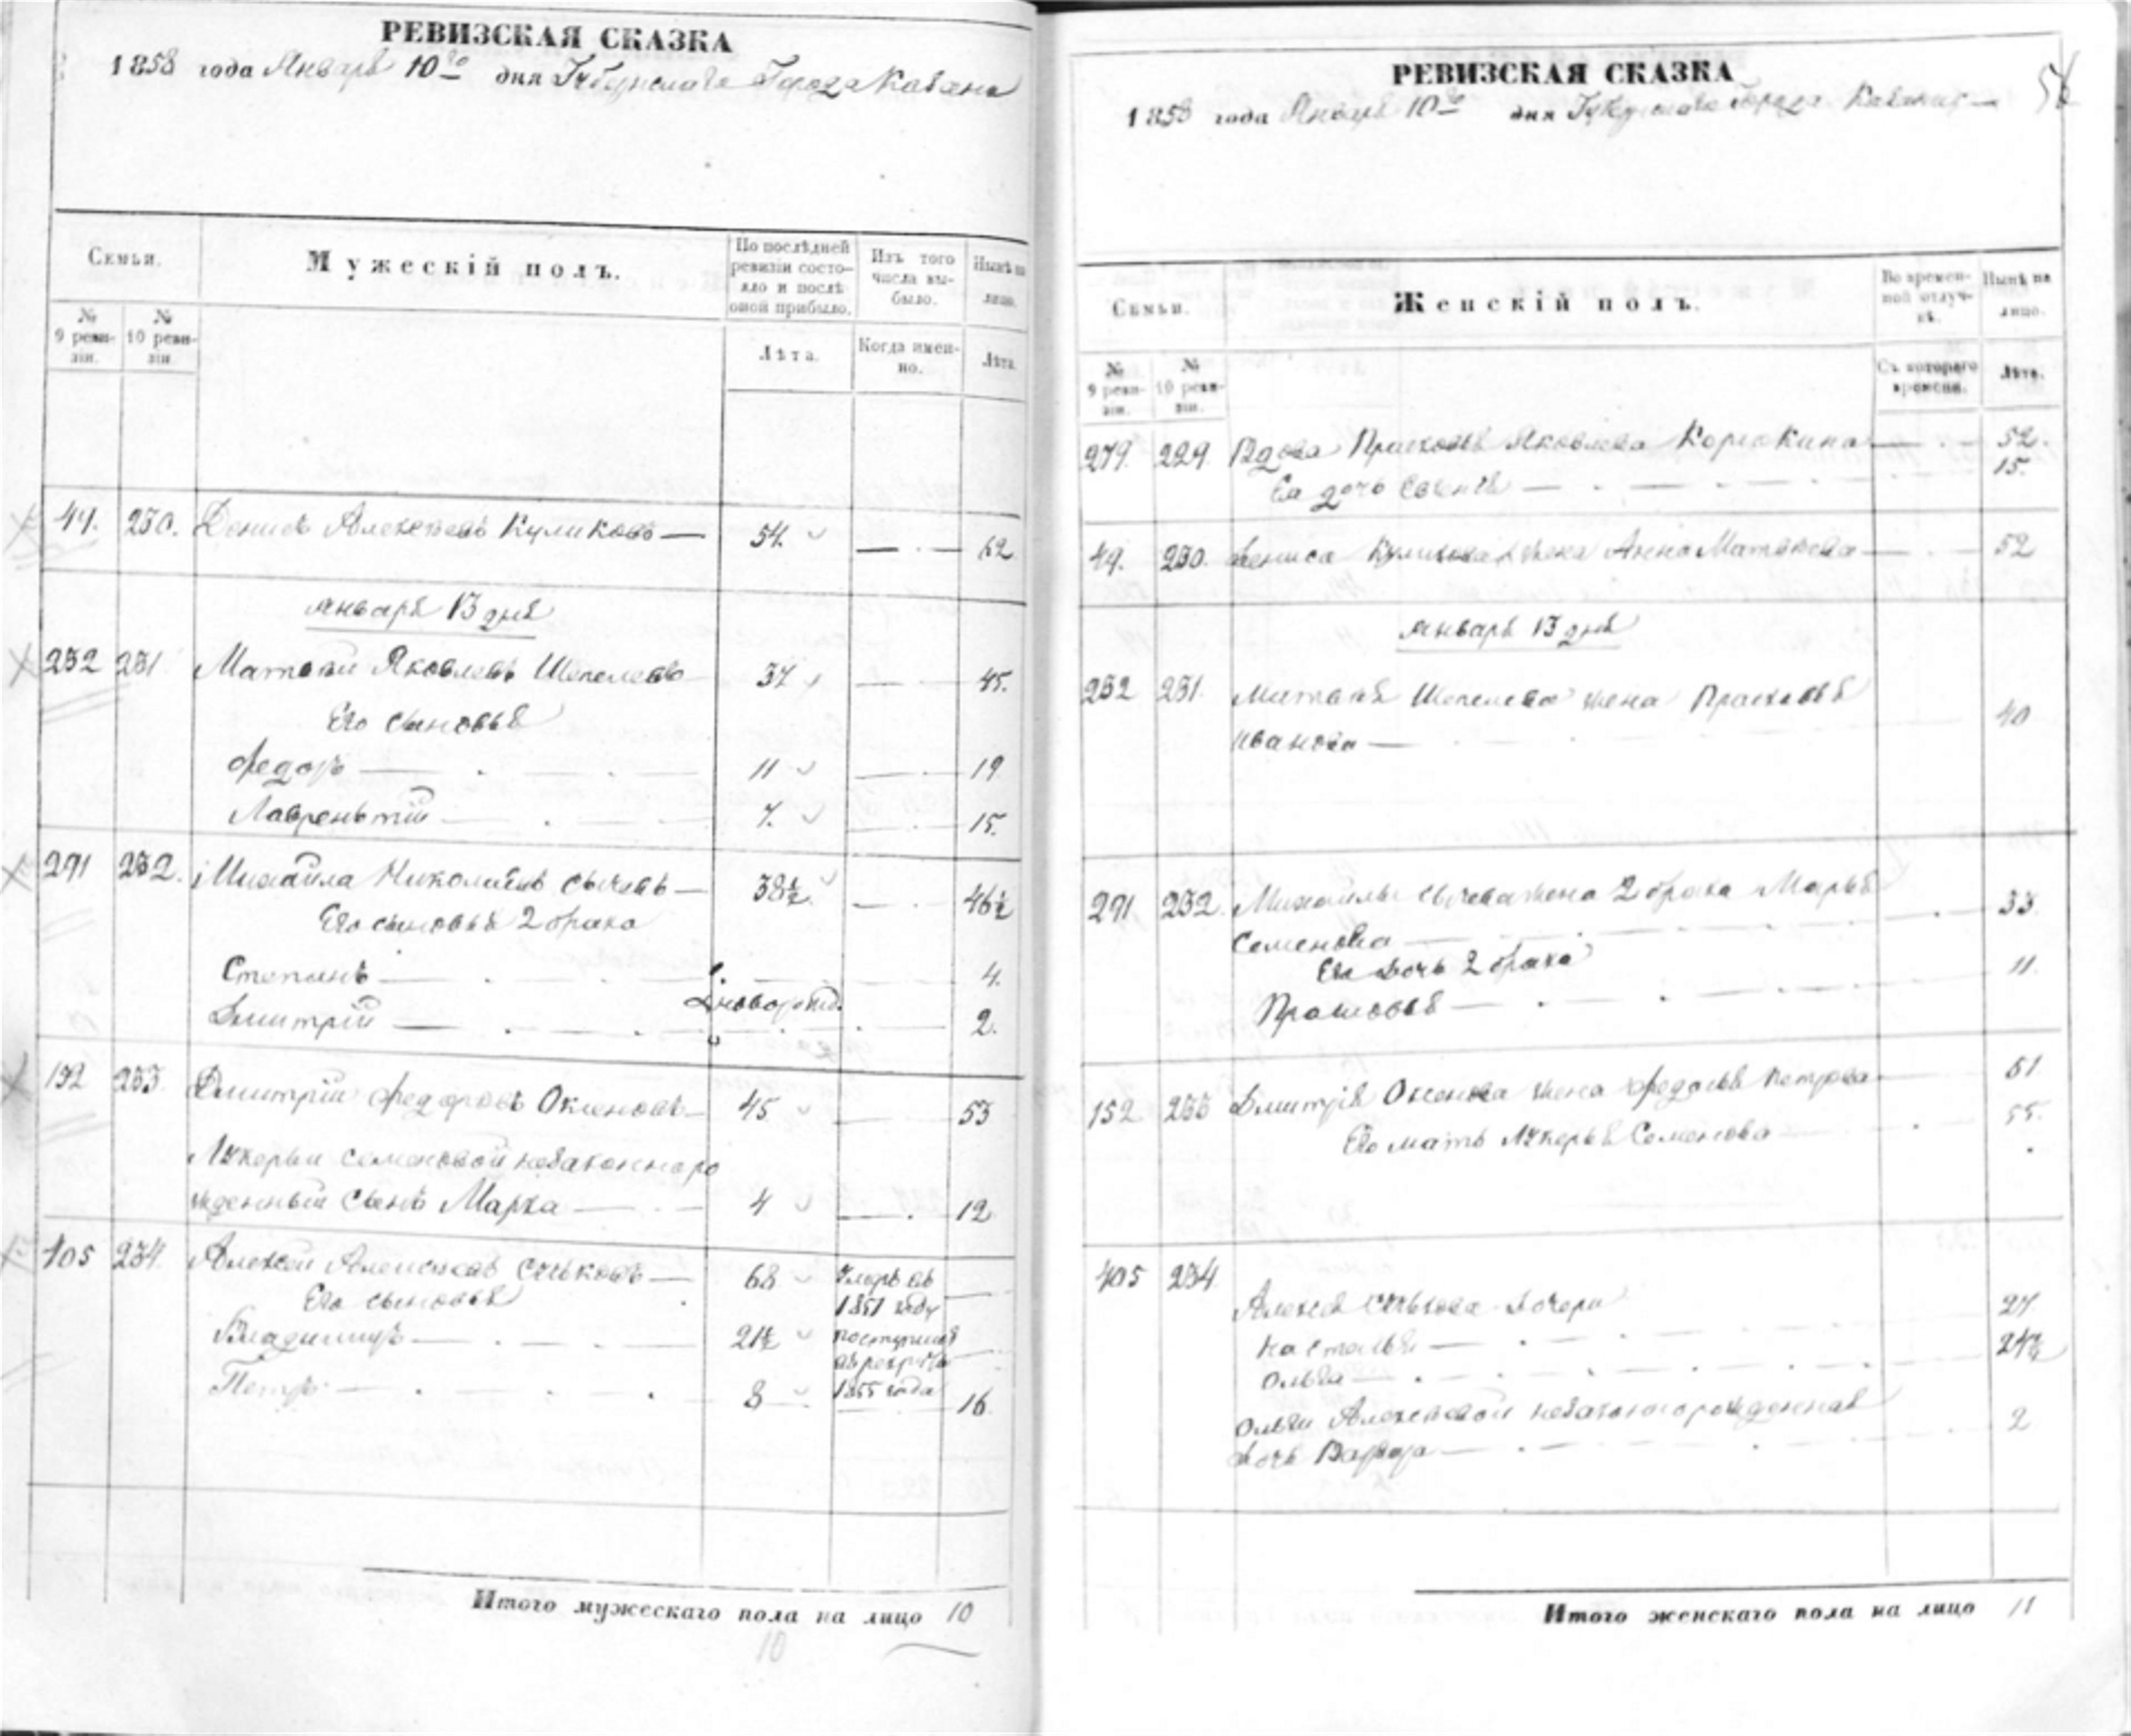 РЕВИЗСКАЯ СКАЗКА
1858 года Января 10го дня Губернскаго Города Казани
Семьи.
Мужескій полъ.
По послѣдней ревизіи состо-
яло и послѣ
оной прибыло.
Изъ того
числа вы-
было.
Нынѣ на
лицо.
№
9 реви-
зіи.
№
10 реви-
зіи.
Лѣта.
Когда имен-
но.
Лѣта.
49. 230. Денисъ Алексѣевъ Куликовъ — 54. — 62
Января 13 дня
232 231 Матвѣй Яковлевъ Шепелевъ 37 — 45.
Его сыновья
Федоръ — 11 — 19
Лаврентій — 7. — 15.
291 232. Михайла Николаевъ Сычевъ — 38½ — 46½
Его сыновья 2 брака
Степанъ — новорожд. 4.
Дмитрій — 2.
152 233 Дмитрій Федоровъ Оксеновъ — 45 — 53
Лукерьи Семеновой незаконноро
жденный сынъ Марка — 4 — 12
405 234. Алексѣй Алексѣевъ — 68 умеръ въ
1851 году —
Его сыновья
Владимиръ — 21½ поступилъ
въ рекруты
1855 года —
Петръ — 8 — 16.
Итого мужескаго пола на лицо 10
10
РЕВИЗСКАЯ СКАЗКА
56
1858 года Января 10го дня Губернскаго Города Казани —
Семьи.
Женскій полъ.
Во времен-
ной отлуч-
кѣ.
Нынѣ на
лицо.
№
9 реви-
зіи.
№
10 реви-
зіи.
Съ котораго
времени.
Лѣта.
279. 229. Вдова Прасковья Яковлева Корюкина — 52.
Ея дочь — 15.
49. 230. Дениса Куликова жена Анна Матвѣева — 52
Января 13 дня
232 231. Матвѣя Шепелева жена Прасковья
Иванова — 40
291 232. Михайлы Сычева жена 2 брака Марья
Семенова — 33
Его дочь 2 брака
Прасковья — 11.
152 233 Дмитрія Оксенова жена Федосья Петрова — 51
Его мать Лукерья Семенова — 55.
405 234
Алексѣя дочери
Настасья — 27
Ольга — 24½
Ольги Алексѣевой незаконнорожденная
дочь Варвара — 2
Итого женскаго пола на лицо 11